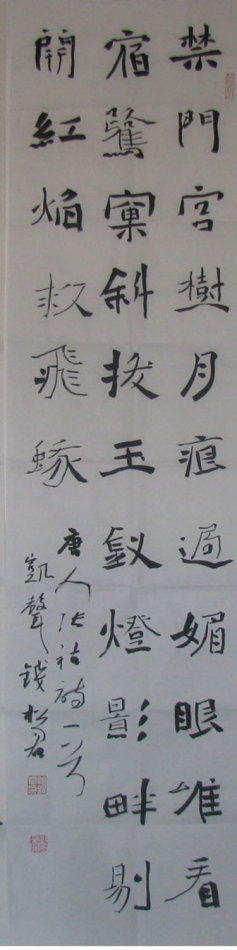 禁門宮樹月痕過媚眼惟看
宿鷺窠斜拔玉釵燈影畔剔
開紅焰救飛蛾
唐人張祜詩一首
凱聲錢松君